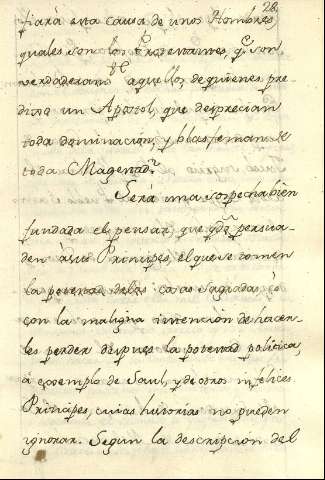 28.
fiará esta causa de unos Hombres,
quales son los Protestantes, q.e son
verdaderam.te aquellos de quienes pre-
dixo un Apostol, que desprecian
toda dominacion, y blasfeman de
toda Magestad.
Será una sospecha bien
fundada el pensar, que persua-
den à sus Principes, el que se tomen
la potestad de las cosas sagradas,
con la maligna intencion de hacer-
les perder despues la potestad politica,
á exemplo de Saul, y de otros infelices
Principes, cuias historias no pueden
ignorar. Segun la descripcion del